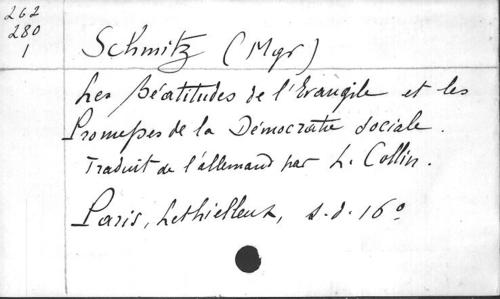 262
280
1
Schmitz (Mgr)
Les Béatitudes de l'Evangile et les
Promesses de la Démocratie sociale.
Traduit de l'allemand par L. Collin.
Paris, Lethielleux, s.d. 16º